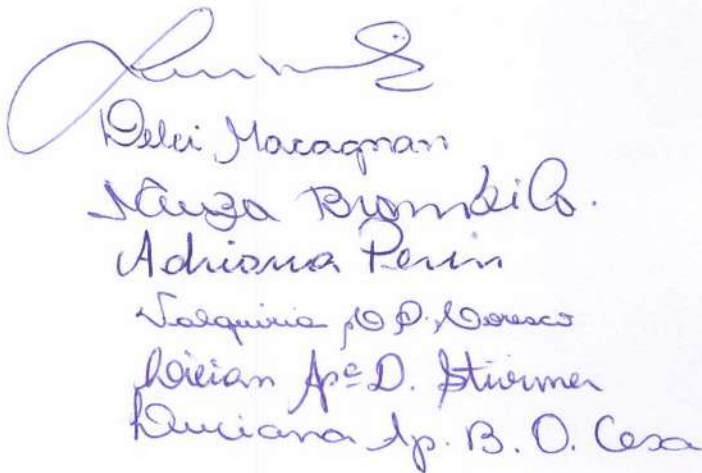 Delci Macagnan
Neuza Brombilo.
Adriana Perin
Valquiria D. D. Moresco
Lilian Apª D. Stürmer
Luciana Ap. B. O. Cesa